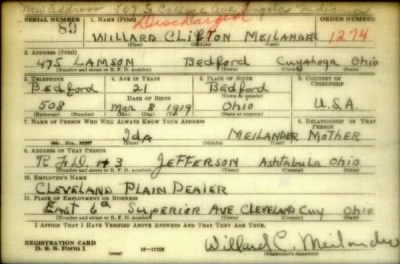 New Address 507 S College Ave Angola Indiana
Discharged
SERIAL NUMBER 1. NAME (Print) ORDER NUMBER
89 WILLARD CLIFTON MEILANDER 1274
(First) (Middle) (Last)
2. ADDRESS (Print)
475 LAMSON Bedford Cuyahoga Ohio
(Number and street or R. F. D. number) (Town) (County) (State)
3. TELEPHONE 4. AGE IN YEARS 5. PLACE OF BIRTH 6. COUNTRY OF CITIZENSHIP
Bedford 21 Bedford
DATE OF BIRTH (Town or county)
508 Mar 8 1919 Ohio U.S.A
7. NAME OF PERSON WHO WILL ALWAYS KNOW YOUR ADDRESS 8. RELATIONSHIP OF THAT PERSON
Ida MEILANDER MOTHER
(Mr., Mrs., Miss) (First) (Middle) (Last)
9. ADDRESS OF THAT PERSON
R.F.D. #3 JEFFERSON Ashtabula Ohio
(Number and street or R. F. D. number) (Town) (County) (State)
10. EMPLOYER'S NAME
CLEVELAND PLAIN DEALER
11. PLACE OF EMPLOYMENT OR BUSINESS
EAST 6th SUPERIOR AVE CLEVELAND Cuy Ohio
(Number and street or R. F. D. number) (Town) (County) (State)
I AFFIRM THAT I HAVE VERIFIED ABOVE ANSWERS AND THAT THEY ARE TRUE.
REGISTRATION CARD
D. S. S. Form 1 16-17105 Willard C. Meilander